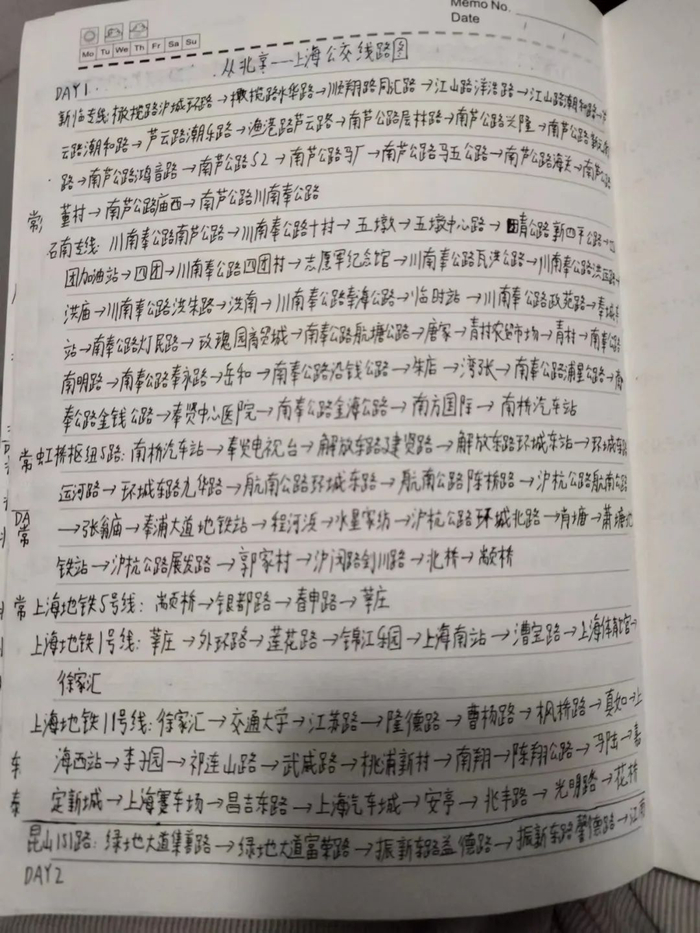 Memo No.
Mo Tu We Th Fr Sa Su
Date
从北京——上海公交线路图
DAY1
新临专线:橄榄路沪城环路→橄榄路水华路→壮翔路同汇路→江山路洋浩路→江山路潮和路→
云路潮和路→芦云路潮乐路→渔港路芦云路→南芦公路层林路→南芦公路兴隆→南芦公路
路→南芦公路鸿音路→南芦公路S2→南芦公路马厂→南芦公路马五公路→南芦公路海关→南芦公路
董村→南芦公路庙西→南芦公路川南奉公路
常
石南专线:川南奉公路南芦公路→川南奉公路十村→五墩→五墩中心路→晴公路新四平公路→四
团加油站→四团→川南奉公路四团村→志愿军纪念馆→川南奉公路瓦洪公路→川南奉公路洪四路→
洪庙→川南奉公路洪朱路→洪南→川南奉公路奉海公路→临时站→川南奉公路政苑路→奉城
站→南奉公路灯民路→玫瑰园商贸城→南奉公路航塘公路→唐家→青村农贸市场→青村→南奉公路
南明路→南奉公路奉永路→岳和→南奉公路沿钱公路→朱店→湾张→南奉公路浦星公路→南
奉公路金钱公路→奉贤中心医院→南奉公路金海公路→南方国际→南桥汽车站
常 虹桥枢纽5路:南桥汽车站→奉贤电视台→解放东路建贤路→解放东路环城东站→环城东路
运河路→环城东路九华路→航南公路环城东路→航南公路陈桥路→沪杭公路航南公路
DA
常
→张翁庙→奉浦大道地铁站→程河浜→水星家纺→沪杭公路环城北路→肖塘→萧塘地
铁站→沪杭公路展发路→郭家村→沪闵路剑川路→北桥→颛桥
常 上海地铁5号线:颛桥→银都路→春申路→莘庄
上海地铁1号线:莘庄→外环路→莲花路→锦江乐园→上海南站→漕宝路→上海体育馆→
徐家汇
上海地铁11号线:徐家汇→交通大学→江苏路→隆德路→曹杨路→枫桥路→真如→上
海西站→李子园→祁连山路→武威路→桃浦新村→南翔→陈翔公路→马陆→嘉
定新城→上海赛车场→昌吉东路→上海汽车城→安亭→兆丰路→光明路→花桥
昆山151路:绿地大道集善路→绿地大道富荣路→振新东路益德路→振新东路→江南
DAY2